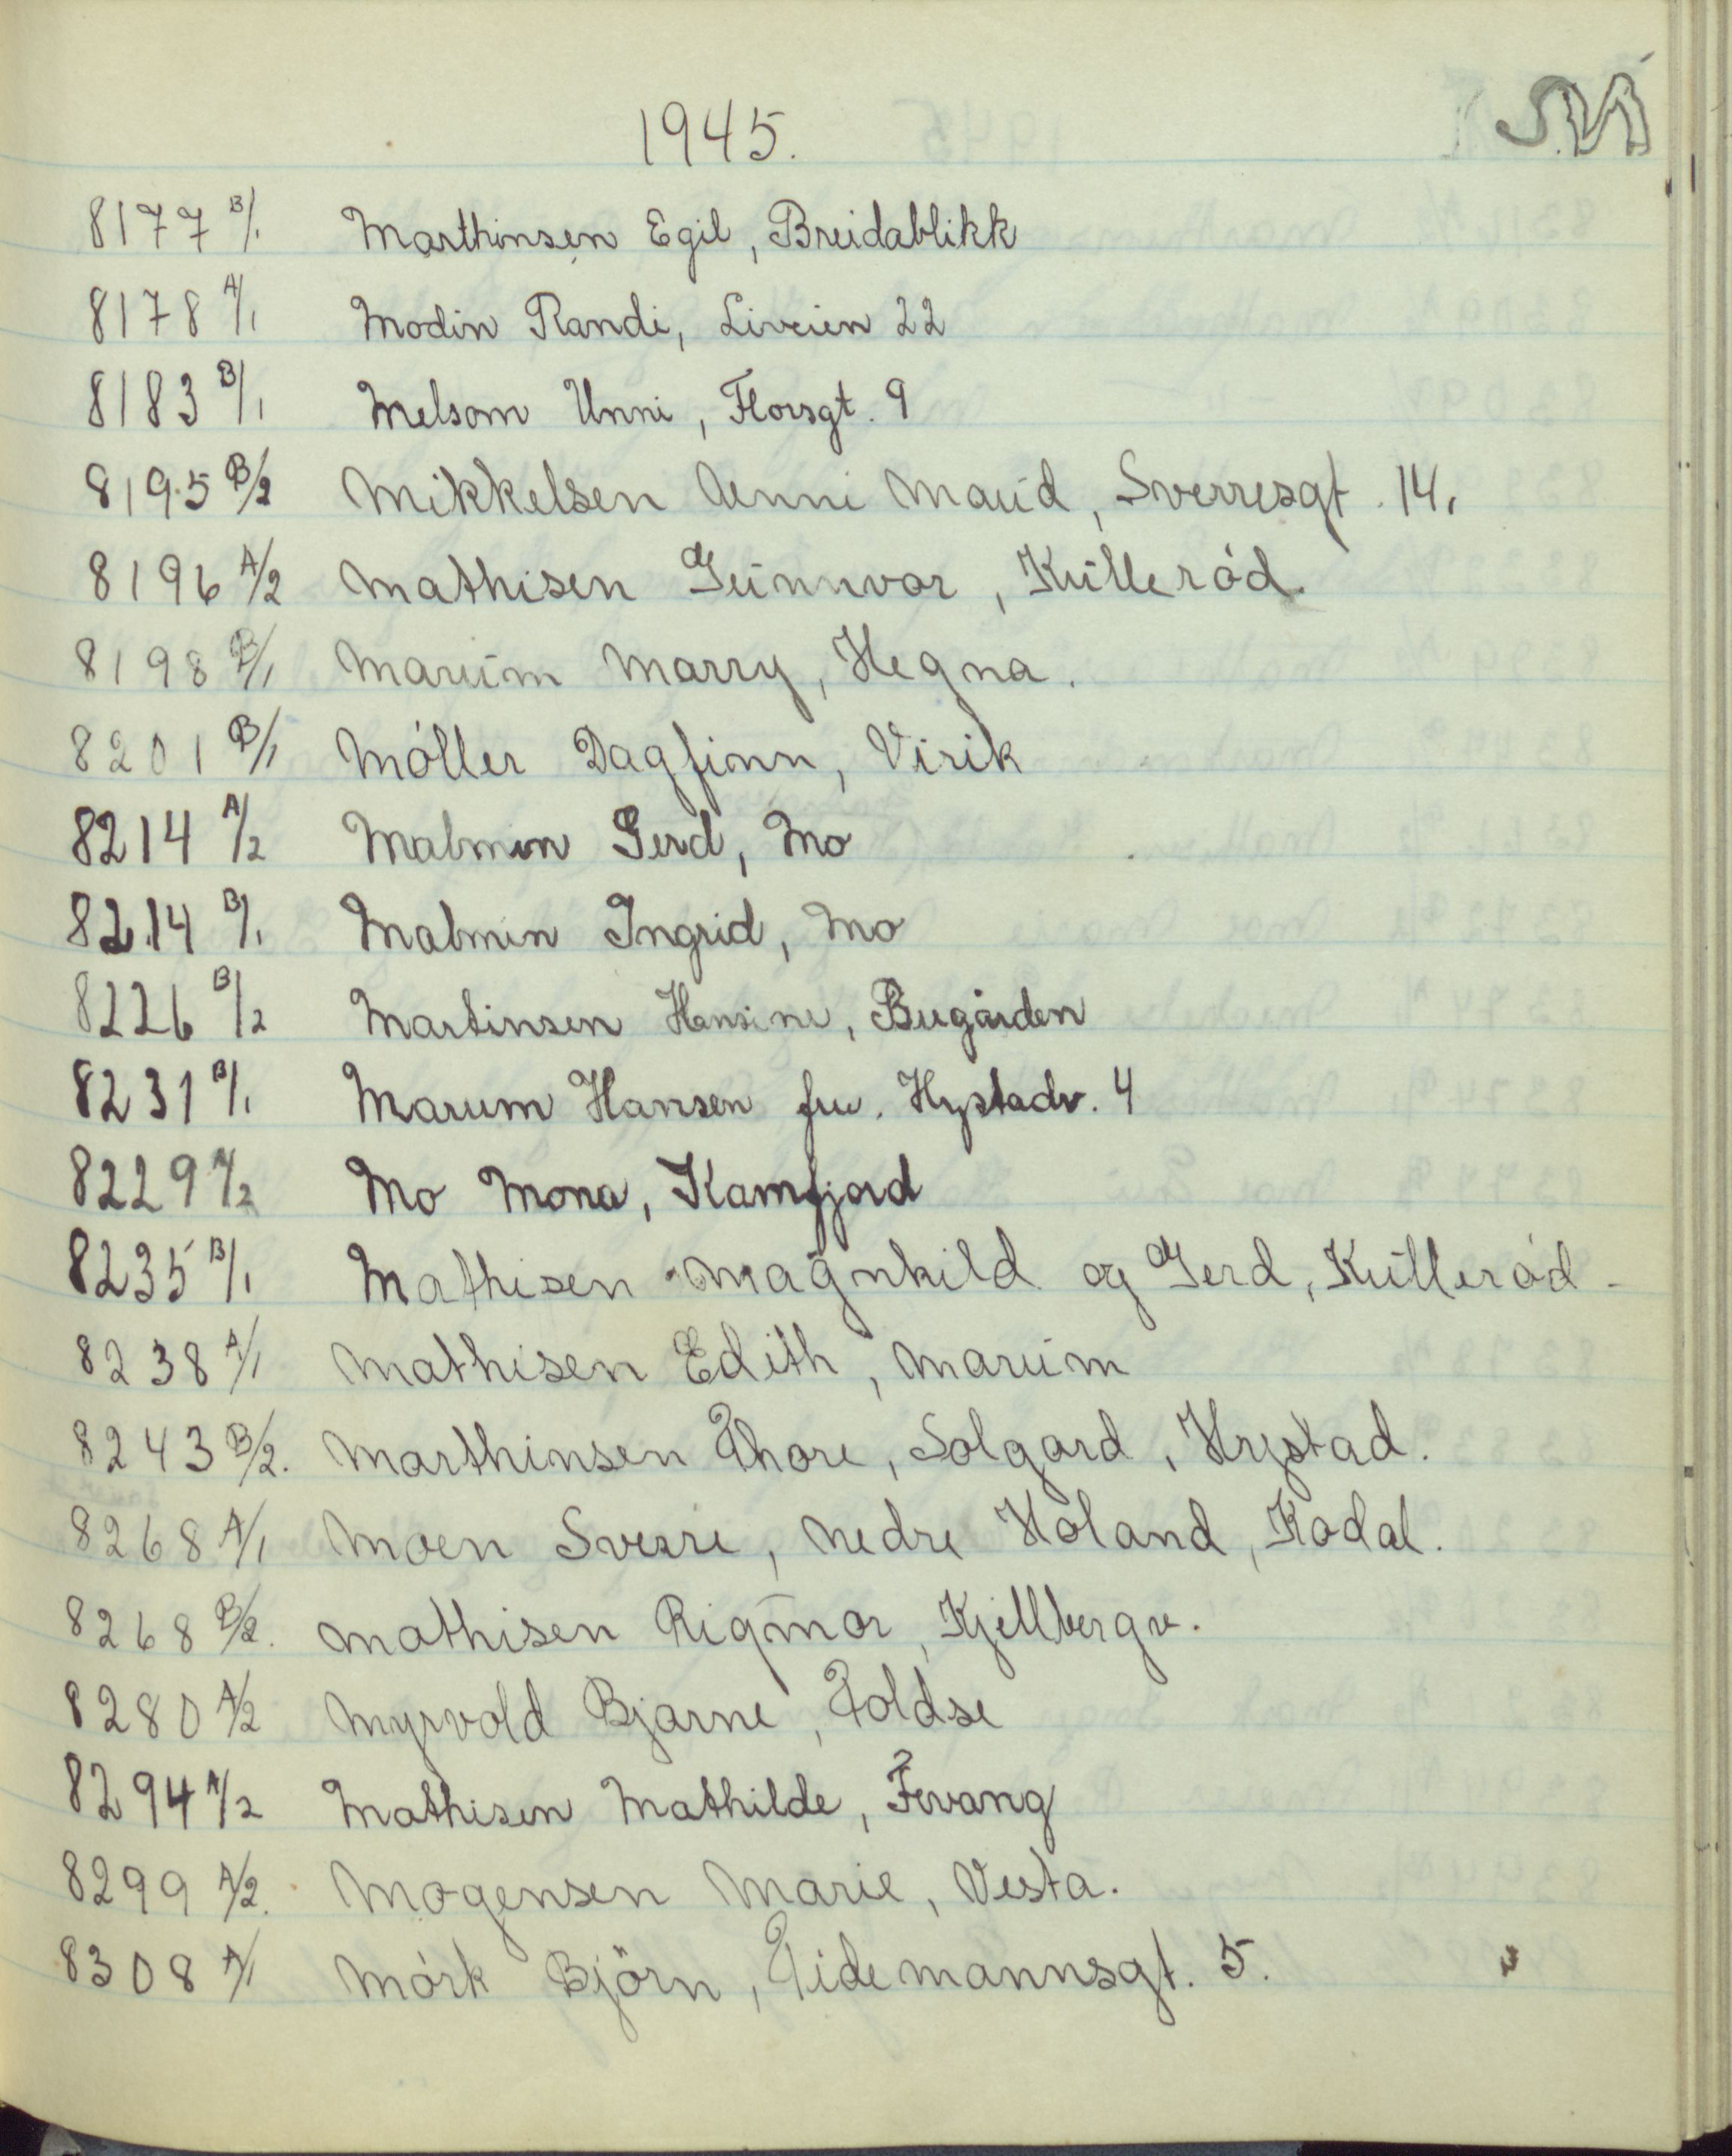 M
1945.
8177 B/1 Marthinsen Egil, Breidablikk
8178 A/1 Modin Randi, Liveien 22
8183 B/1 Melsom Unni, Florsgt. 9
8195 B/2 Mikkelsen Aenni Maud, Sverresgt. 14.
8196 A/2 Mathisen Gunnvor, Kulleród.
8198 B/1 Marum Marry, Hegna.
8201 B/1 Móller Dagfinn, Virik
8214 A/2 Malmin Gerd, Mo
8214 B/1 Malmin Ingrid, Mo
8226 B/2 Martinsen Hansine, Bugården
8231 B/1 Marum Hansen fru. Hystadv. 4
8229 A/2 Mo Mona, Kamfjord
8235 B/1 Mathisen Magnhild og Gerd, Kulleród -
8238 A/1 Mathisen Edith, Marum
8243 B/2. Marthinsen Thore, Solgard, Hystad.
8268 A/1 Moen Sverre, Nedre Holand, Kodal.
8268 B/2. Mathisen Rigmor, Kjellbergv.
8280 A/2 Myrvold Bjarne, Toldse
8294 A/2 Mathisen Mathilde, Fevang
8299 A/2. Mogensen Marie, Vesta.
8308 A/1 Mórk Björn, Tidemannsgt. 5.